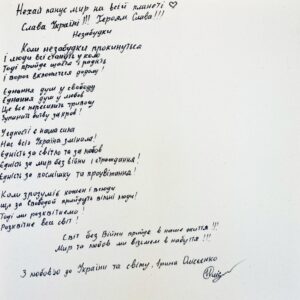 Нехай панує мир на всієї планеті ♡
Слава Україні!!! Героям Слава!!!
Незабудки
Коли незабудки прокинуться
І люди всі стануть у коло
Тоді прийде щастя і радість
І ворог вклониться додолу!
Єднання душ у свободу
Єднання душ у любов
Це все перепинить тривогу
Зупинить битву за кров!
У єдності є наша сила
Нас всіх Україна змінила!
Єдність за світло та за любов
Єдність за мир без війни і страждання!
Єдність за посмішку та процвітання!
Коли зрозуміє кожен і всюди
що за свободой прийдуть вільні люди!
Тоді ми розквітнемо!
Розквітне весь світ!
Світ без війни прийде в наше життя!!!
Мир та любов ми візьмем в набуття!!!
З любов'ю до України та світу, Ірина